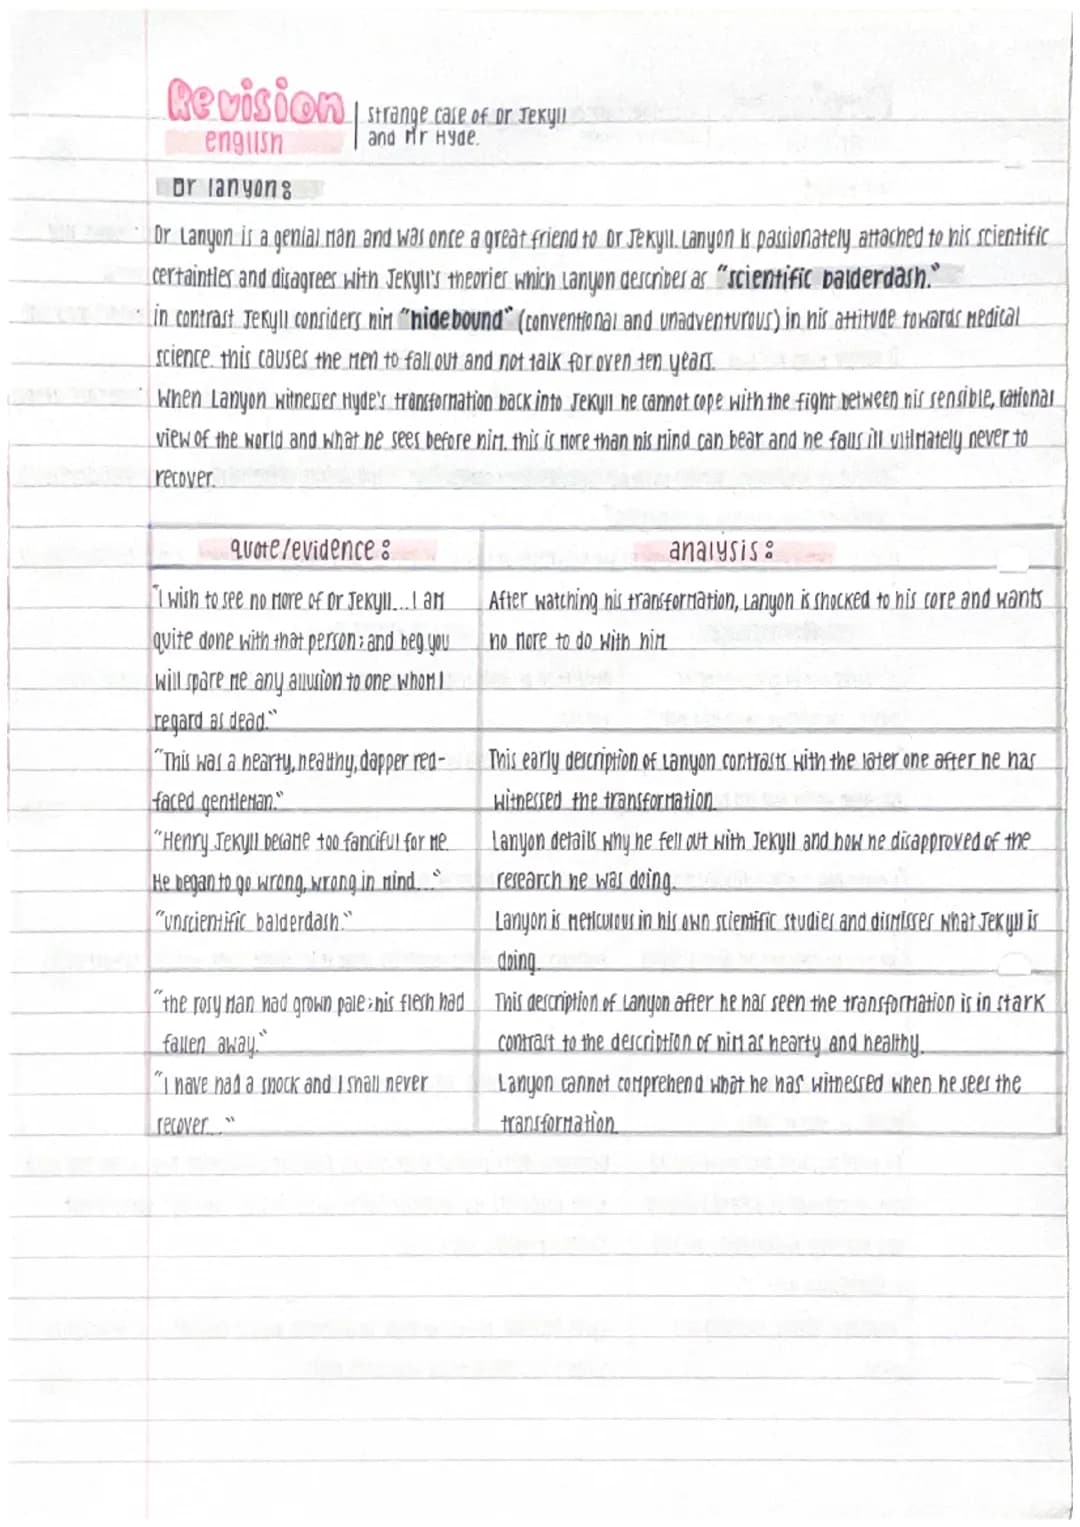 Revision
english
strange case of Dr Jekyll
and Mr Hyde.
Dr lanyon:
Dr Lanyon is a genial man and was once a great friend to Dr Jekyll. Lanyon is passionately attached to his scientific
certainties and disagrees with Jekyll's theories which Lanyon describes as "scientific balderdash."
in contrast Jekyll considers him "hidebound" (conventional and unadventurous) in his attitude towards medical
science. this causes the men to fall out and not talk for oven ten years.
When Lanyon witnesses Hyde's transformation back into Jekyll he cannot cope with the fight between his sensible, rational
view of the world and what he sees before him. this is more than his mind can bear and he falls ill ultimately never to
recover.
quote/evidence: analysis:
"I wish to see no more of Dr Jekyll... I am After watching his transformation, Lanyon is shocked to his core and wants
quite done with that person; and beg you no more to do with him
will spare me any allusion to one whom I
regard as dead."
"This was a hearty, healthy, dapper red- This early description of Lanyon contrasts with the later one after he has
faced gentleman." witnessed the transformation.
"Henry Jekyll became too fanciful for me. Lanyon details why he fell out with Jekyll and how he disapproved of the
He began to go wrong, wrong in mind..." research he was doing.
"unscientific balderdash." Lanyon is meticulous in his own scientific studies and dismisses what Jekyll is
doing.
"the rosy man had grown pale; his flesh had This description of Lanyon after he has seen the transformation is in stark
fallen away." contrast to the description of him as hearty and healthy.
"I have had a shock and I shall never Lanyon cannot comprehend what he has witnessed when he sees the
recover..." transformation.